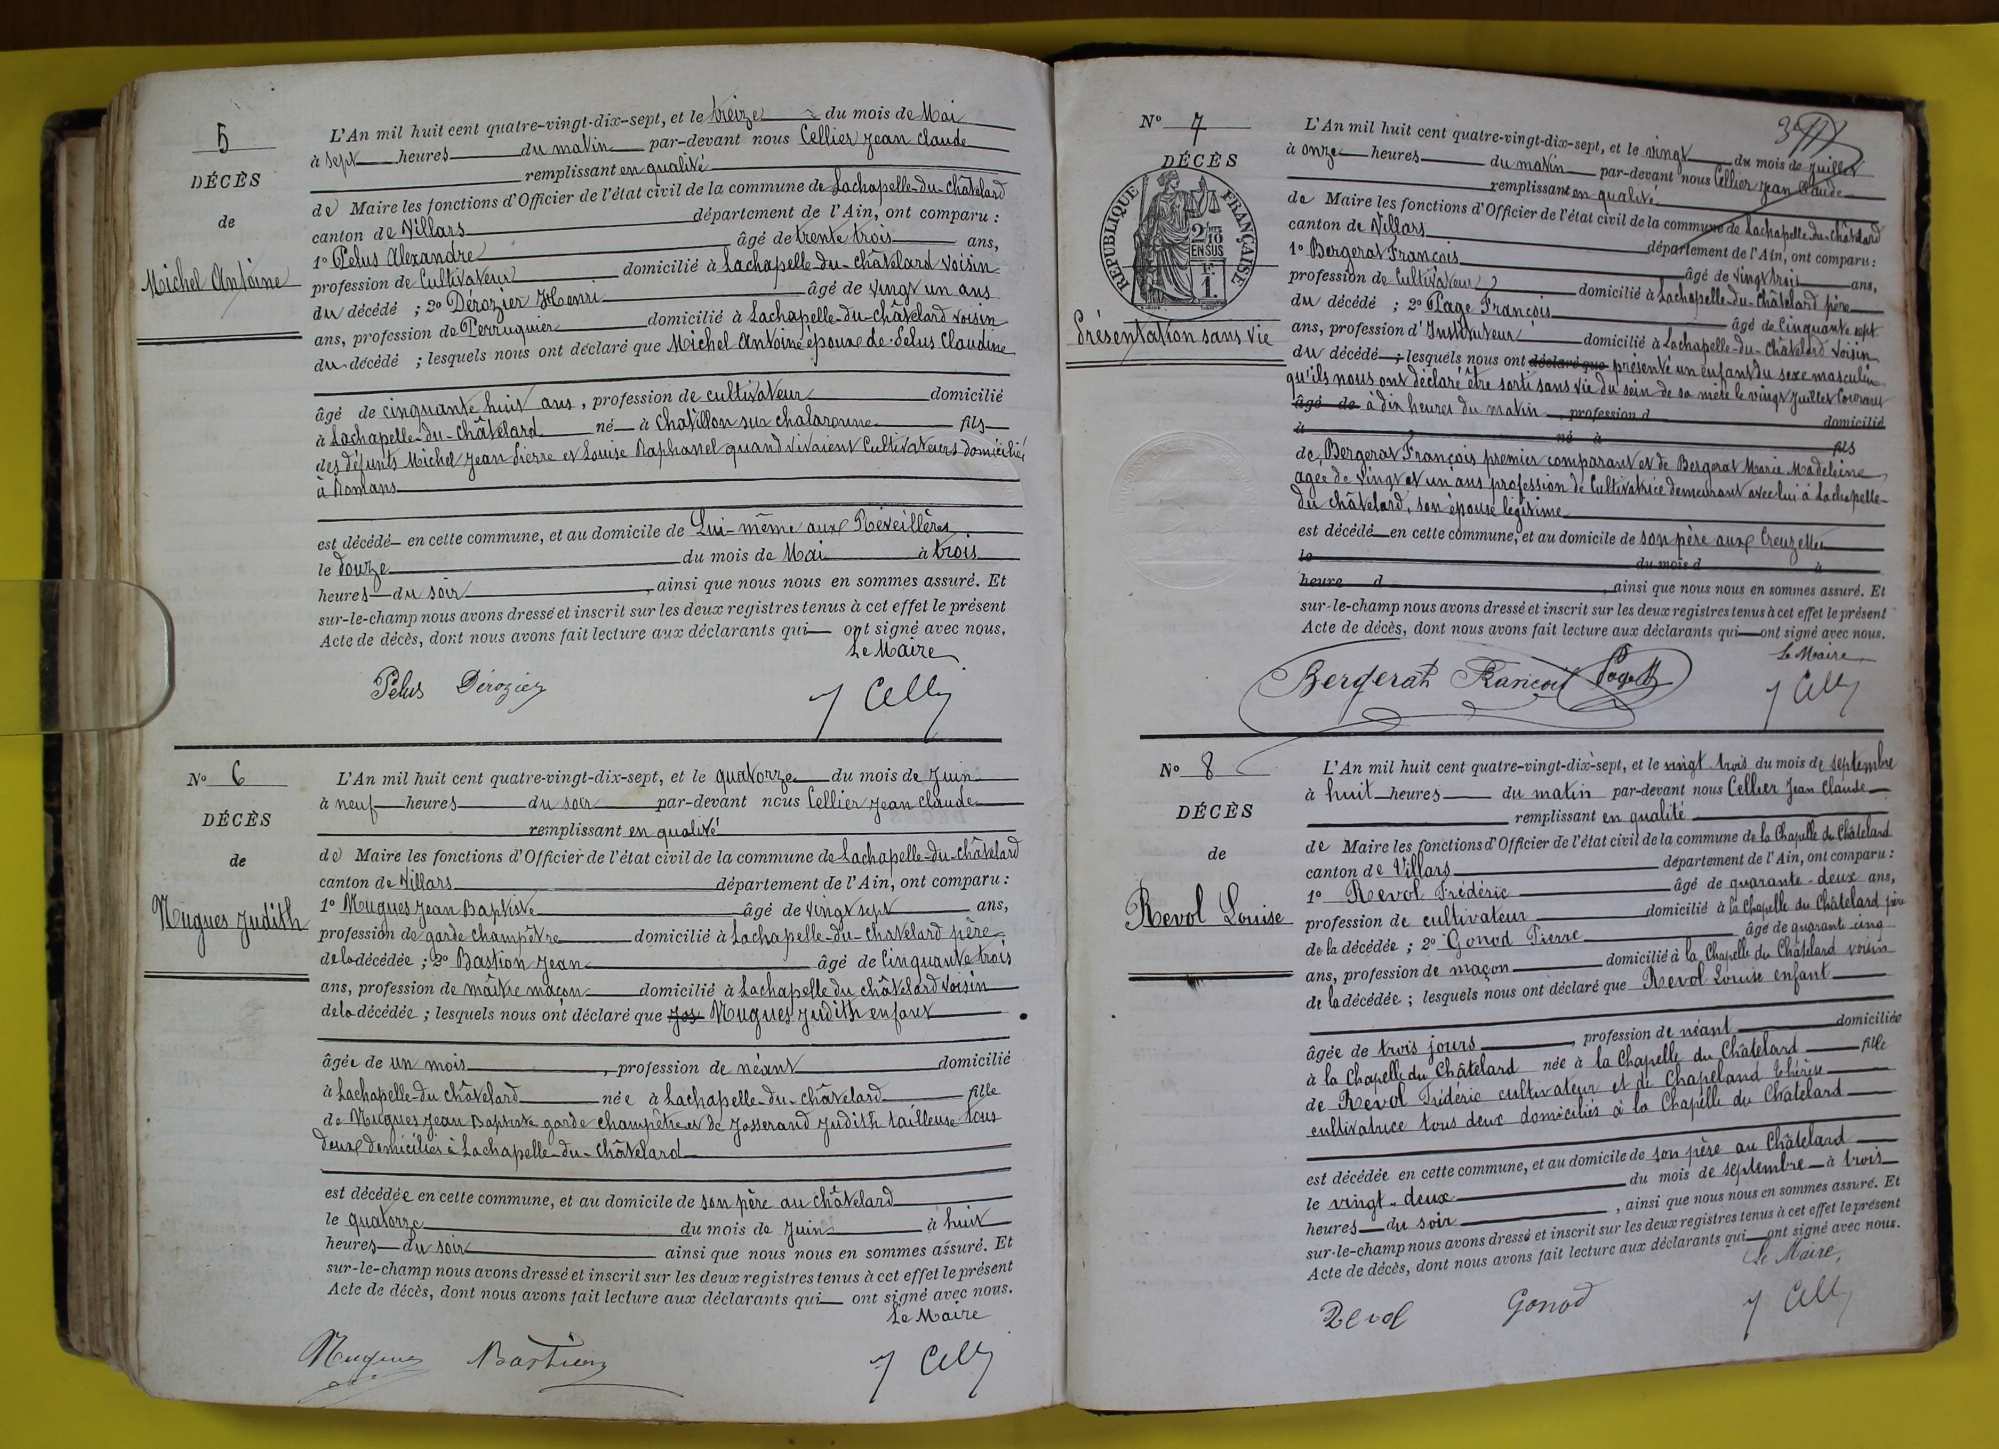 5
DÉCÈS
de
Michel Antoine
L'An mil huit cent quatre-vingt-dix-sept, et le treize du mois de Mai
à sept heures du matin par-devant nous Cellier Jean Claude
remplissant en qualité
de Maire les fonctions d'Officier de l'état civil de la commune de Lachapelle-du-Châtelard
canton de Villars département de l'Ain, ont comparu :
1º Pelus Alexandre âgé de trente trois ans,
profession de Cultivateur domicilié à Lachapelle-du-châtelard voisin
du décédé ; 2º Dérozier Henri âgé de vingt un ans
ans, profession de Perruquier domicilié à Lachapelle-du-Châtelard voisin
du décédé ; lesquels nous ont déclaré que Michel Antoine époux de Pelus Claudine
âgé de cinquante huit ans, profession de cultivateur domicilié
à Lachapelle-du-châtelard né à Chatillon sur chalaronne fils
des défunts Michel Jean Pierre et Louise Raphanel quand vivaient Cultivateurs domiciliés
à Romans
est décédé en cette commune, et au domicile de Lui-même aux Réveillères
le douze du mois de Mai à trois
heures du soir, ainsi que nous nous en sommes assuré. Et
sur-le-champ nous avons dressé et inscrit sur les deux registres tenus à cet effet le présent
Acte de décès, dont nous avons fait lecture aux déclarants qui ont signé avec nous.
Le Maire
Pelus Dérozier J Cellier
Nº 6
DÉCÈS
de
Mugues Judith
L'An mil huit cent quatre-vingt-dix-sept, et le quatorze du mois de Juin
à neuf heures du soir par-devant nous Cellier Jean Claude
remplissant en qualité
de Maire les fonctions d'Officier de l'état civil de la commune de Lachapelle-du-Châtelard
canton de Villars département de l'Ain, ont comparu :
1º Mugues Jean Baptiste âgé de vingt sept ans,
profession de garde champêtre domicilié à Lachapelle-du-chatelard père
de la décédée ; 2º Bastion Jean âgé de Cinquante trois
ans, profession de maître maçon domicilié à Lachapelle du châtelard voisin
de la décédée ; lesquels nous ont déclaré que Jos Mugues Judith enfant
âgée de un mois, profession de néant domicilié
à Lachapelle-du châtelard née à Lachapelle-du-châtelard fille
de Mugues Jean Baptiste garde champêtre et de Josserand Judith tailleuse tous
deux domiciliés à Lachapelle-du-châtelard
est décédée en cette commune, et au domicile de son père au châtelard
le quatorze du mois de Juin à huit
heures du soir ainsi que nous nous en sommes assuré. Et
sur-le-champ nous avons dressé et inscrit sur les deux registres tenus à cet effet le présent
Acte de décès, dont nous avons fait lecture aux déclarants qui ont signé avec nous.
Le Maire
Mugues Bastion J Cellier
Nº 7
DÉCÈS
REPUBLIQUE FRANÇAISE
2/10
EN SUS
1
Présentation sans vie
L'An mil huit cent quatre-vingt-dix-sept, et le vingt du mois de Juillet
à onze heures du matin par-devant nous Cellier Jean Claude
remplissant en qualité
de Maire les fonctions d'Officier de l'état civil de la commune de Lachapelle-du-châtelard
canton de Villars département de l'Ain, ont comparu :
1º Bergerat François âgé de vingt trois ans,
profession de Cultivateur domicilié à Lachapelle-du-Châtelard père
du décédé ; 2º Page François âgé de Cinquante sept
ans, profession d'Instituteur domicilié à Lachapelle-du-Châtelard voisin
du décédé ; lesquels nous ont déclaré que présenté un enfant du sexe masculin
qu'ils nous ont déclaré être sorti sans vie du sein de sa mère le vingt Juillet Courant
âgé de à dix heures du matin, profession d domicilié
à né à fils
de, Bergerat François premier comparant et de Bergerat Marie Madeleine
agée de vingt et un ans profession de Cultivatrice demeurant avec lui à Lachapelle-
du châtelard, son épouse légitime
est décédé en cette commune, et au domicile de son père aux Creuzettes
le du mois d à
heure d, ainsi que nous nous en sommes assuré. Et
sur-le-champ nous avons dressé et inscrit sur les deux registres tenus à cet effet le présent
Acte de décès, dont nous avons fait lecture aux déclarants qui ont signé avec nous.
Le Maire
Bergerat Francois J Cellier
Nº 8
DÉCÈS
de
Revol Louise
L'An mil huit cent quatre-vingt-dix-sept, et le vingt trois du mois de septembre
à huit heures du matin par-devant nous Cellier Jean Claude
remplissant en qualité
de Maire les fonctions d'Officier de l'état civil de la commune de la Chapelle du Châtelard
canton de Villars département de l'Ain, ont comparu :
1º Revol Frédéric âgé de quarante-deux ans,
profession de cultivateur domicilié à la Chapelle du Châtelard père
de la décédée ; 2º Gonod Pierre âgé de quarante-cinq
ans, profession de maçon domicilié à la Chapelle du Châtelard voisin
de la décédée ; lesquels nous ont déclaré que Revol Louise enfant
âgée de trois jours, profession de néant domiciliée
à la Chapelle du Châtelard née à la Chapelle du Châtelard fille
de Revol Frédéric cultivateur et de Chapeland Thérèse
cultivatrice tous deux domiciliés à la Chapelle du Châtelard
est décédée en cette commune, et au domicile de son père au Châtelard
le vingt-deux du mois de septembre à trois
heures du soir, ainsi que nous nous en sommes assuré. Et
sur-le-champ nous avons dressé et inscrit sur les deux registres tenus à cet effet le présent
Acte de décès, dont nous avons fait lecture aux déclarants qui ont signé avec nous.
Le Maire,
Revol Gonod J Cellier